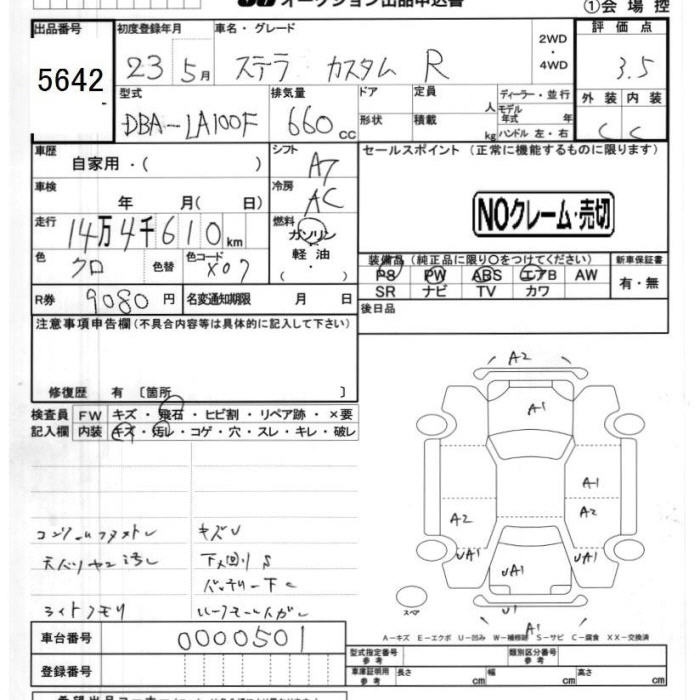 オークション出品申込書 ①会場控
出品番号 初度登録年月 車名・グレード 2WD・4WD 評価点
5642 23 5月 ステラ カスタム R 3.5
型式 排気量 ドア 定員 人 ディーラー・並行 外装 内装
モデル年式 年
DBA-LA100F 660cc 形状 積載 kg ハンドル 左・右 C C
車歴 シフト セールスポイント (正常に機能するものに限ります)
自家用・( ) A7
車検 冷房
年 月( 日) AC NOクレーム・売切
走行 燃料
14万4千610km ガソリン・軽油・( )
色 色替 色コード 装備品 (純正品に限り○をつけてください) 新車保証書
クロ X07 PS PW ABS エアB AW 有・無
SR ナビ TV カワ
R券 9080円 名変通知期限 月 日 後日品
注意事項申告欄(不具合内容等は具体的に記入して下さい)
A2
A1
修復歴 有 〔箇所 〕
検査員 FW キズ・飛石・ヒビ割・リペア跡・×要
記入欄 内装 キズ・汚レ・コゲ・穴・スレ・キレ・破レ
A1
A2 A2
キズU
天バリ
下回りS UA1 UA1
UA1
バッテリー下C
ライトクモリ スペア U1
A1
車台番号 0000501 A-キズ E-エクボ U-凹み W-補修跡 S-サビ C-腐食 XX-交換済
型式指定番号 参考 類別区分番号 参考
登録番号 車庫証明用 参考 長さ cm 幅 cm 高さ cm